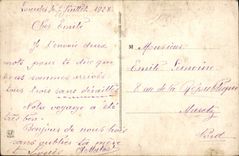 Lourdes le 5 Juillet 1928
Cher Emile
Je t'envoie deux
mots pour te dire que
nous sommes arrivés
tous trois sans dérailler
Notre voyage a été
très bon.
Bonjour de nous trois
sans oublier la mère
Monsieur
Emile
rue de la République